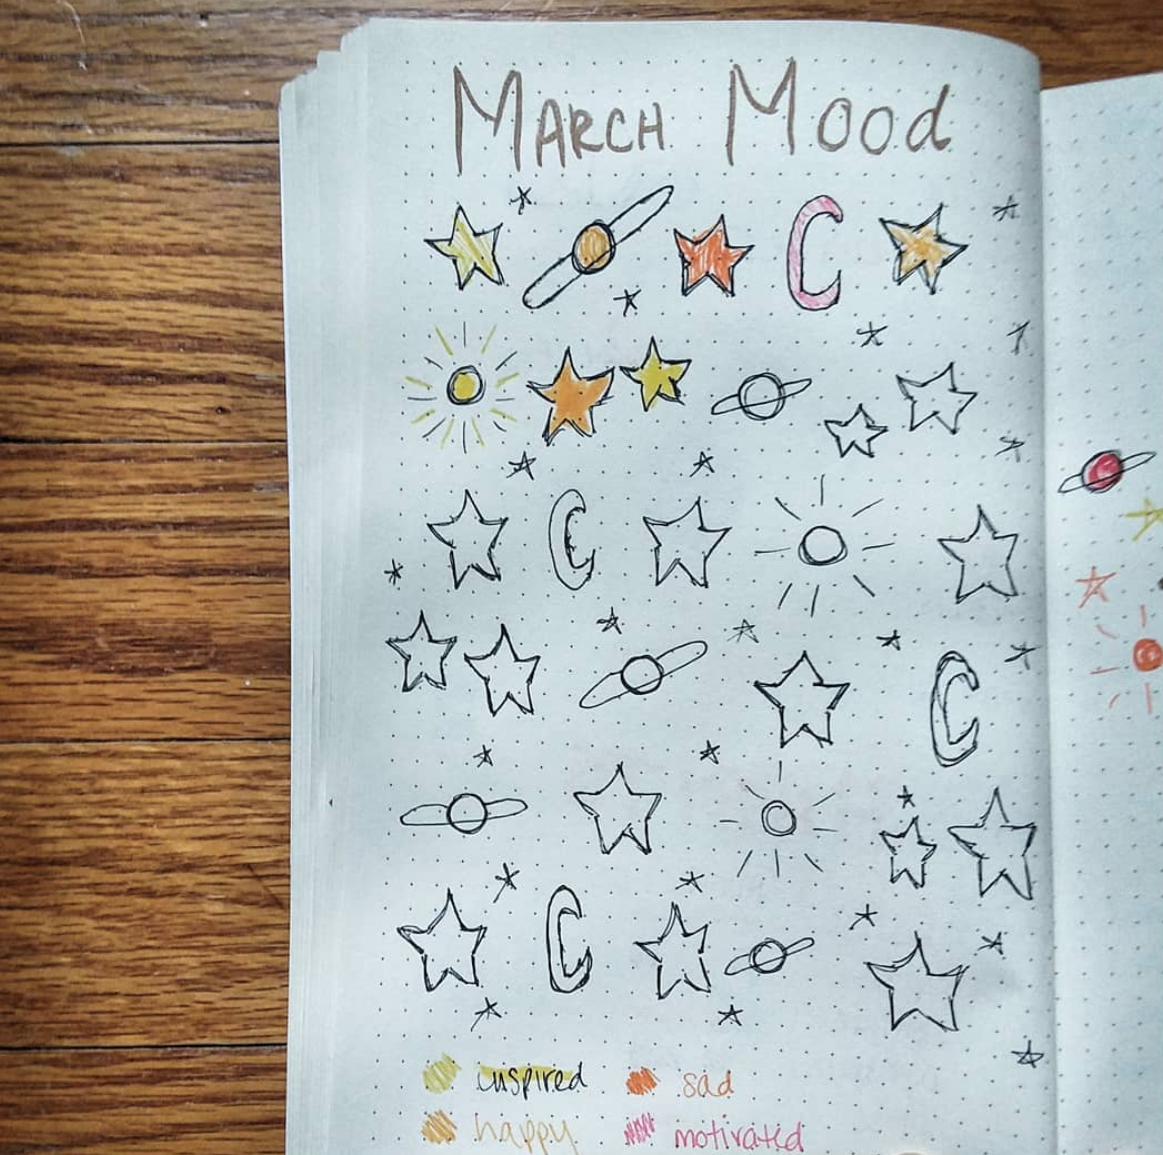 MARCH MOOD
inspired sad
happy motivated